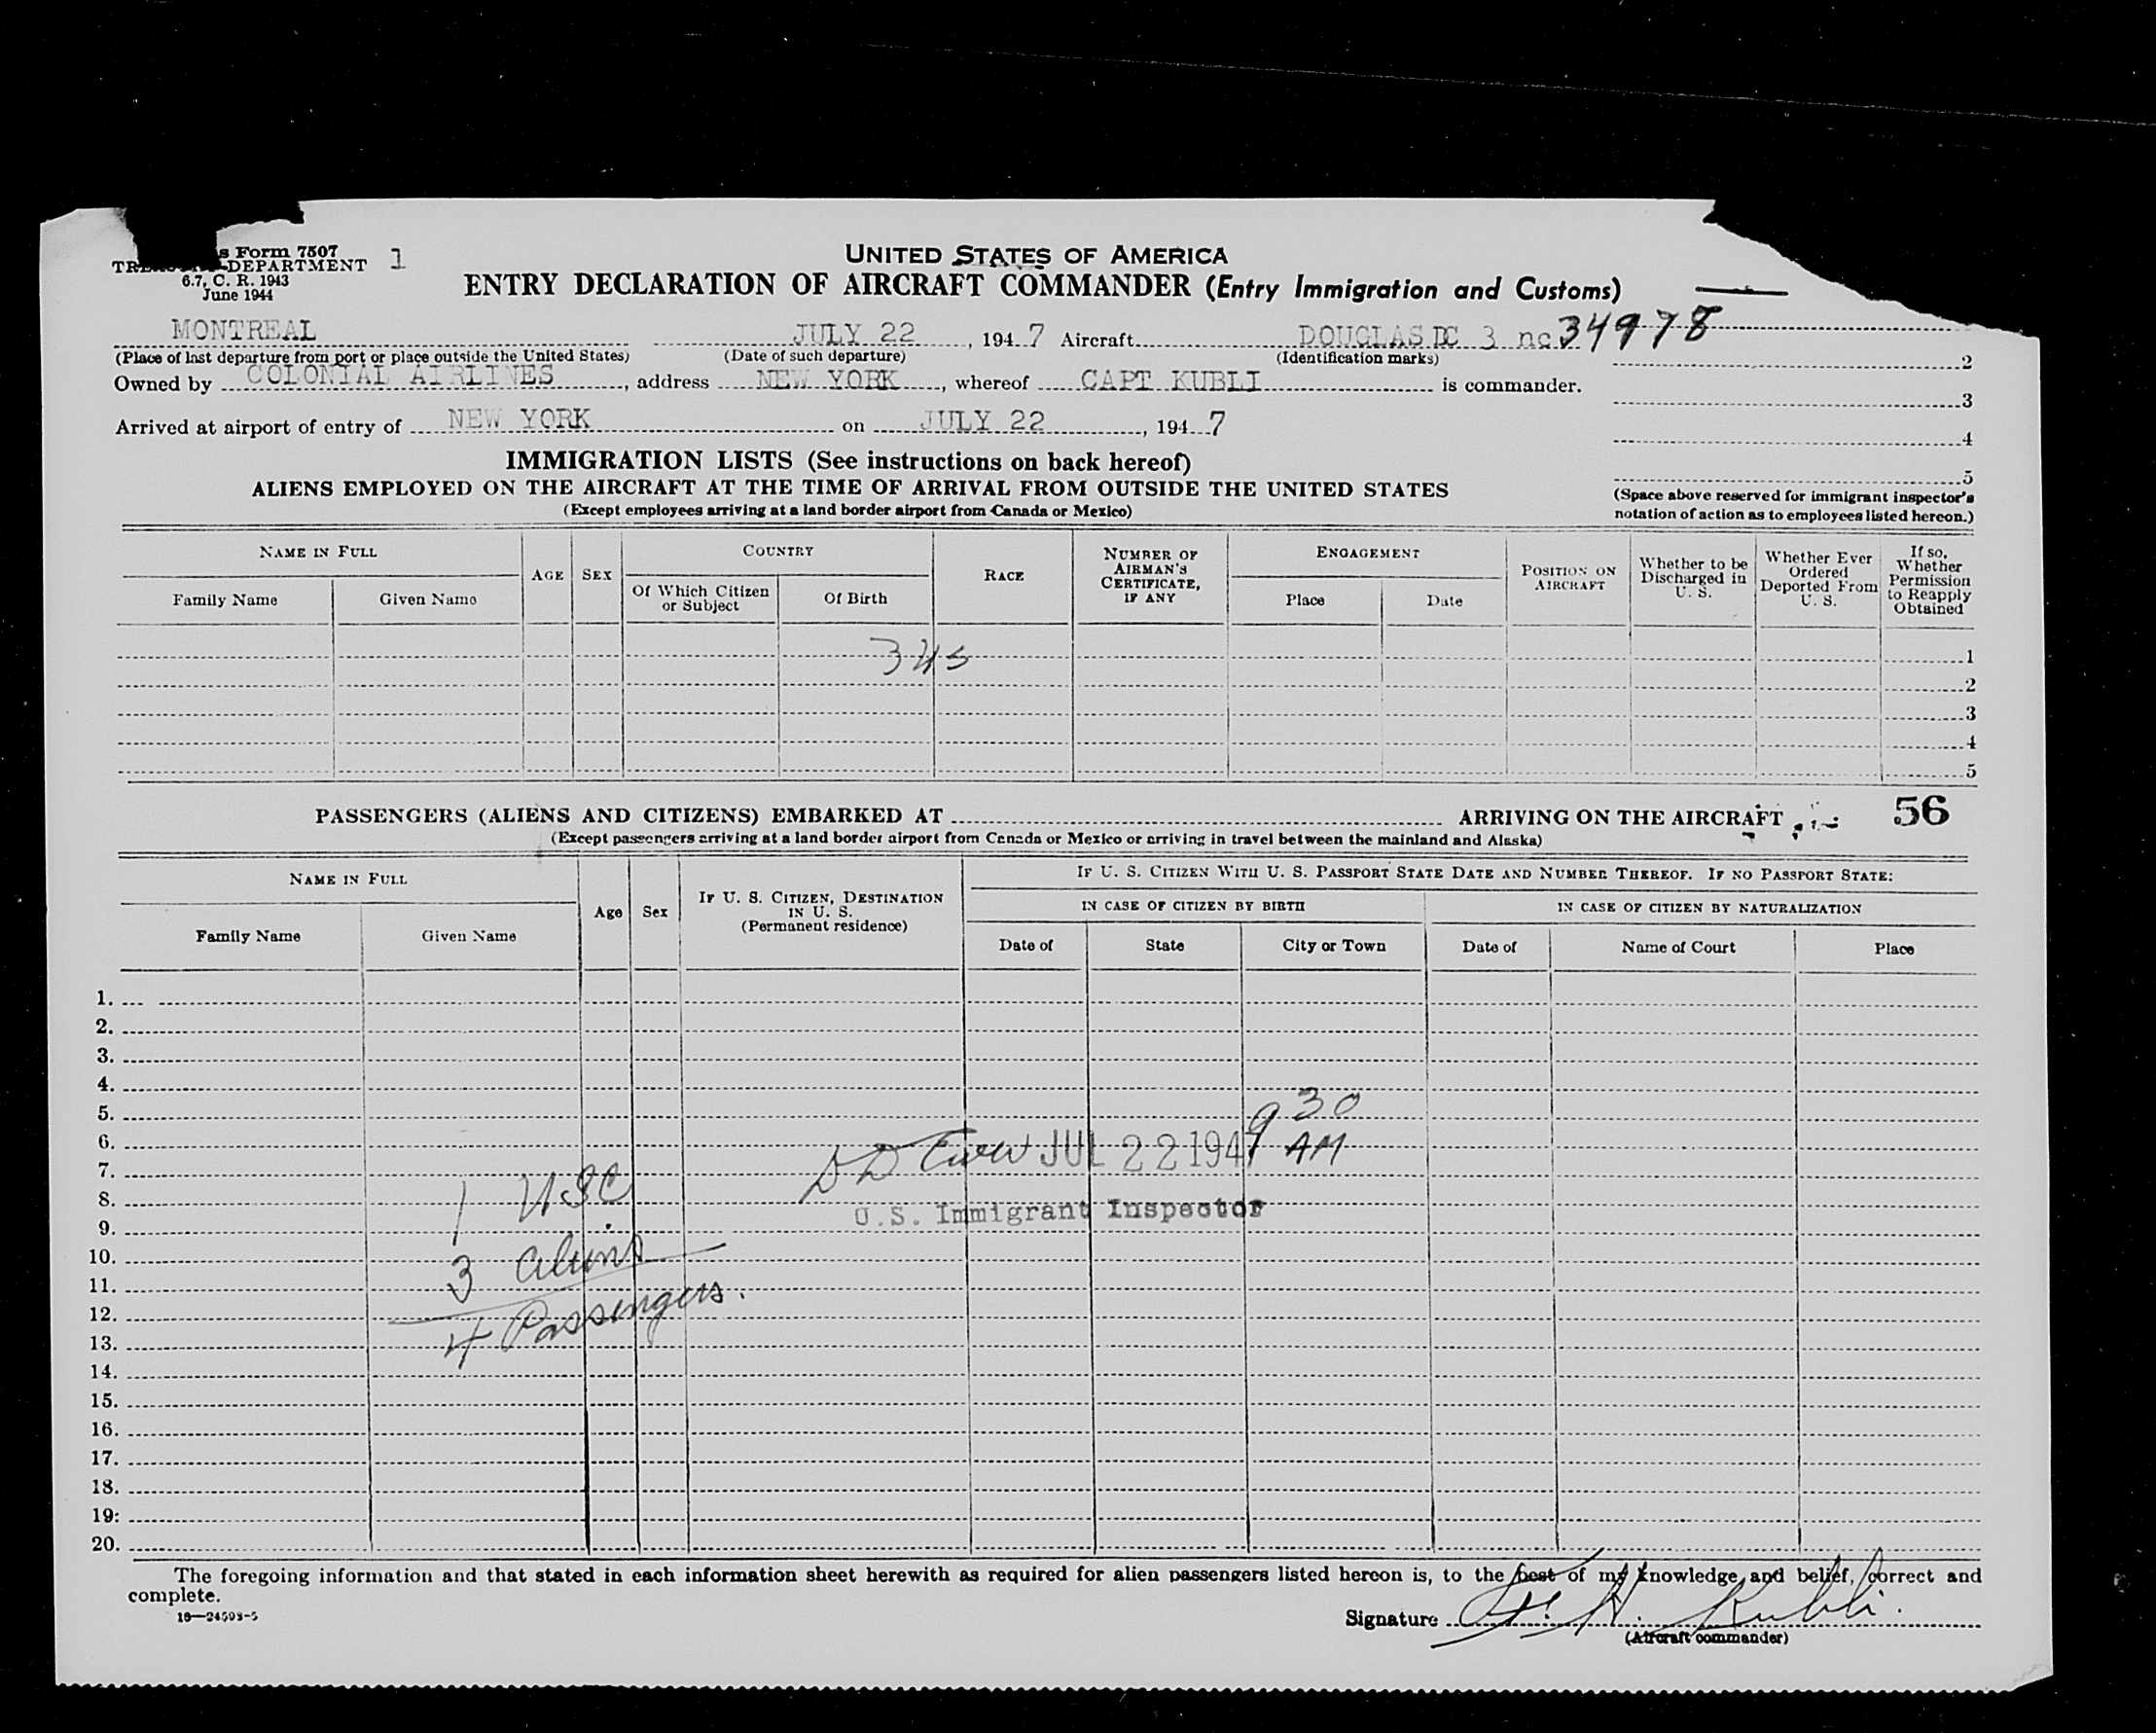 s Form 7507
TREASURY DEPARTMENT 1
6.7, C. R. 1943
June 1944
UNITED STATES OF AMERICA
ENTRY DECLARATION OF AIRCRAFT COMMANDER (Entry Immigration and Customs)
MONTREAL JULY 22, 1947 Aircraft DOUGLAS DC 3 nc 34978
(Place of last departure from port or place outside the United States) (Date of such departure) (Identification marks)
2
Owned by COLONIAL AIRLINES, address NEW YORK, whereof CAPT KUBLI is commander.
3
Arrived at airport of entry of NEW YORK on JULY 22, 1947
4
IMMIGRATION LISTS (See instructions on back hereof)
5
ALIENS EMPLOYED ON THE AIRCRAFT AT THE TIME OF ARRIVAL FROM OUTSIDE THE UNITED STATES
(Except employees arriving at a land border airport from Canada or Mexico)
(Space above reserved for immigrant inspector's
notation of action as to employees listed hereon.)
NAME IN FULL
Family Name Given Name
AGE SEX
COUNTRY
Of Which Citizen or Subject Of Birth
RACE
NUMBER OF AIRMAN'S CERTIFICATE, IF ANY
ENGAGEMENT
Place Date
POSITION ON AIRCRAFT
Whether to be Discharged in U. S.
Whether Ever Ordered Deported From U. S.
If so, Whether Permission to Reapply Obtained
345
1
2
3
4
5
PASSENGERS (ALIENS AND CITIZENS) EMBARKED AT ARRIVING ON THE AIRCRAFT 56
(Except passengers arriving at a land border airport from Canada or Mexico or arriving in travel between the mainland and Alaska)
NAME IN FULL
Family Name Given Name
Age Sex
IF U. S. CITIZEN, DESTINATION IN U. S.
(Permanent residence)
IF U. S. CITIZEN WITH U. S. PASSPORT STATE DATE AND NUMBER THEREOF. IF NO PASSPORT STATE:
IN CASE OF CITIZEN BY BIRTH IN CASE OF CITIZEN BY NATURALIZATION
Date of State City or Town Date of Name of Court Place
1.
2.
3.
4.
5.
9 30
6.
JUL 22 1947 AM
7.
1 USC
8.
U.S. Immigrant Inspector
9.
10.
3 aliens
11.
12.
4 Passengers.
13.
14.
15.
16.
17.
18.
19:
20.
The foregoing information and that stated in each information sheet herewith as required for alien passengers listed hereon is, to the best of my knowledge and belief, correct and
complete.
16—24593-5
Signature H. Kubli.
(Aircraft commander)